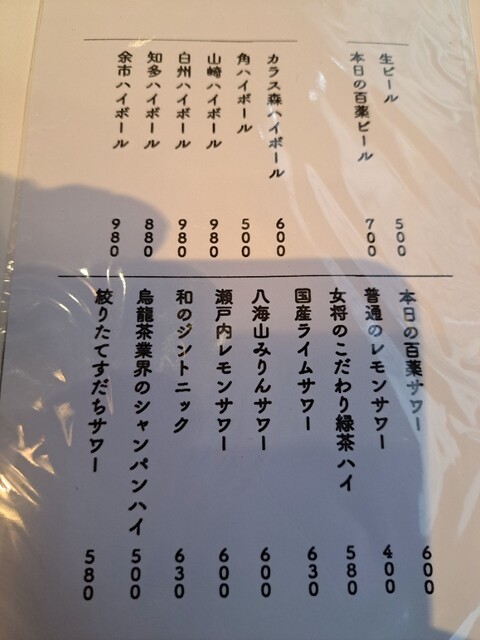 生ビール 500
本日の百薬ビール 700
カラス森ハイボール 600
角ハイボール 500
山崎ハイボール 980
白州ハイボール 980
知多ハイボール 880
余市ハイボール 980
本日の百薬サワー 600
普通のレモンサワー 400
女将のこだわり緑茶ハイ 580
国産ライムサワー 630
八海山みりんサワー 600
瀬戸内レモンサワー 600
和のジントニック 630
烏龍茶業界のシャンパンハイ 500
絞りたてすだちサワー 580